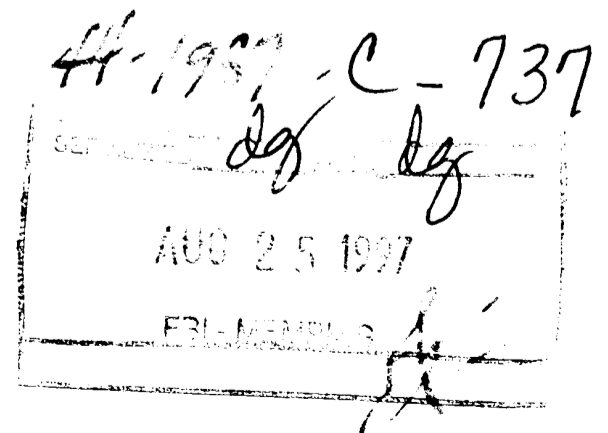 44-1987-C-737
dg dg
AUG 25 1997
FBI-MEMPHIS